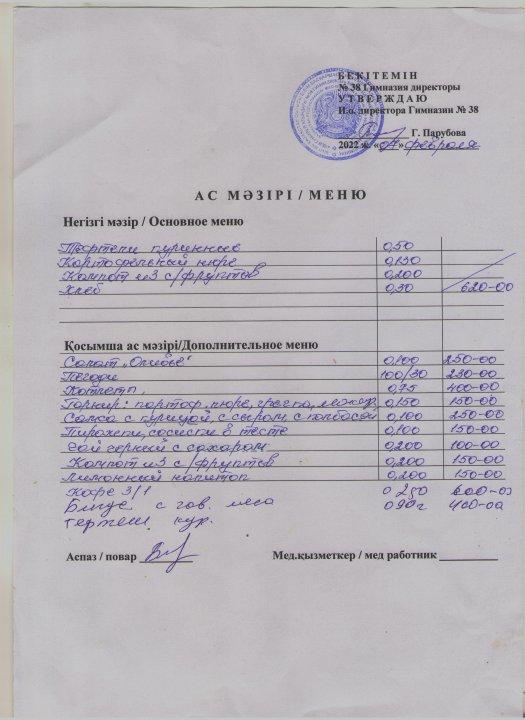 БЕКІТЕМІН
№ 38 Гимназия директоры
УТВЕРЖДАЮ
И.о. директора Гимназии № 38
Г. Парубова
2022 ж. «04» февраля
АС МӘЗІРІ / МЕНЮ
Негізгі мәзір / Основное меню
Тефтели куринные 0,50
Картофельный пюре 0,130
Компот из с/фруктов 0,200
Хлеб 0,30 620-00
Қосымша ас мәзірі/Дополнительное меню
Салат "Оливье" 0,100 250-00
Пегоди 100/30 230-00
Котлеты, 0,75 400-00
Гарнир: картоф. пюре, гречка, 0,150 150-00
Самса с курицой, с сыром, с колбасой 0,100 250-00
Пирожки, сосиски в тесте 0,100 150-00
Чай черный с сахаром 0,200 100-00
Компот из с/фруктов 0,200 150-00
Лимонный напиток 0,200 150-00
Кофе 3/1 0 250 200-00
с гов. мяса 090г 400-00
кур.
Аспаз / повар
Мед.қызметкер / мед работник